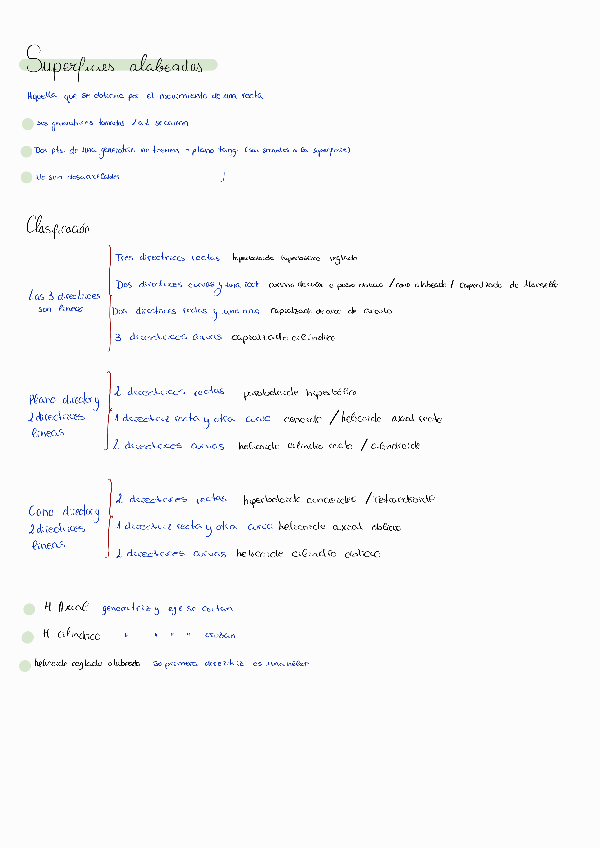 Superficies alabeadas
Aquella que se obtiene por el movimiento de una recta
Sus generatrices tomadas 2 a 2 se cruzan
Dos pts. de una generatriz no tienen = plano tang. (son a la superficie)
No son desarrollables
Clasificación
Tres directrices rectas hiperboloide hiperbólico reglado
Dos directrices curvas y una rect. cuerno de vaca o paso oblicuo / cono alabeado / Capialzado de Marsella
Las 3 directrices son líneas
Dos directrices rectas y una curva capialzado de arco de círculo
3 directrices curvas capialzado cilíndrico
2 directrices rectas paraboloide hiperbólico
Plano director y 2 directrices líneas
1 directriz recta y otra curva conoide / helicoide axial recto
2 directrices curvas helicoide cilíndrico recto / cilindroide
2 directrices rectas hiperboloide
Cono director y 2 directrices líneas
1 directriz recta y otra curva helicoide axial oblicuo
2 directrices curvas helicoide cilíndrico oblicuo
H Axial generatriz y eje se cortan
H cilíndrico " " " " cruzan
helicoide reglado alabeado Su primera directriz es una hélice